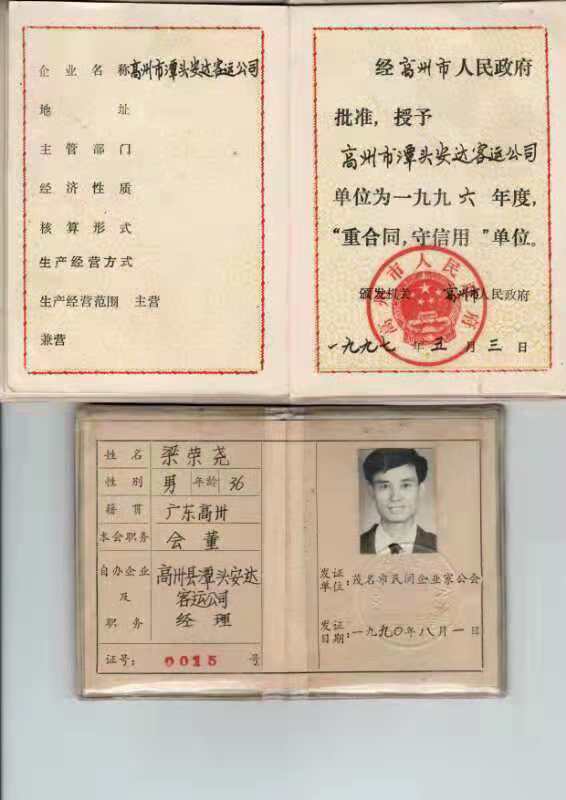 企业名称 高州市潭头安达客运公司
地址
主管部门
经济性质
核算形式
生产经营方式
生产经营范围 主营
兼营
经高州市人民政府
批准，授予
高州市潭头安达客运公司
单位为一九九六年度，
“重合同，守信用”单位。
高州市人民政府
颁发机关 高州市人民政府
一九九七年五月三日
姓名 梁荣尧
性别 男 年龄 36
籍贯 广东高州
本会职务 会董
自办企业及职务 高州县潭头安达
客运公司
经理
证号：0015号
发证单位：茂名市民间企业家公会
发证日期：一九九〇年八月一日